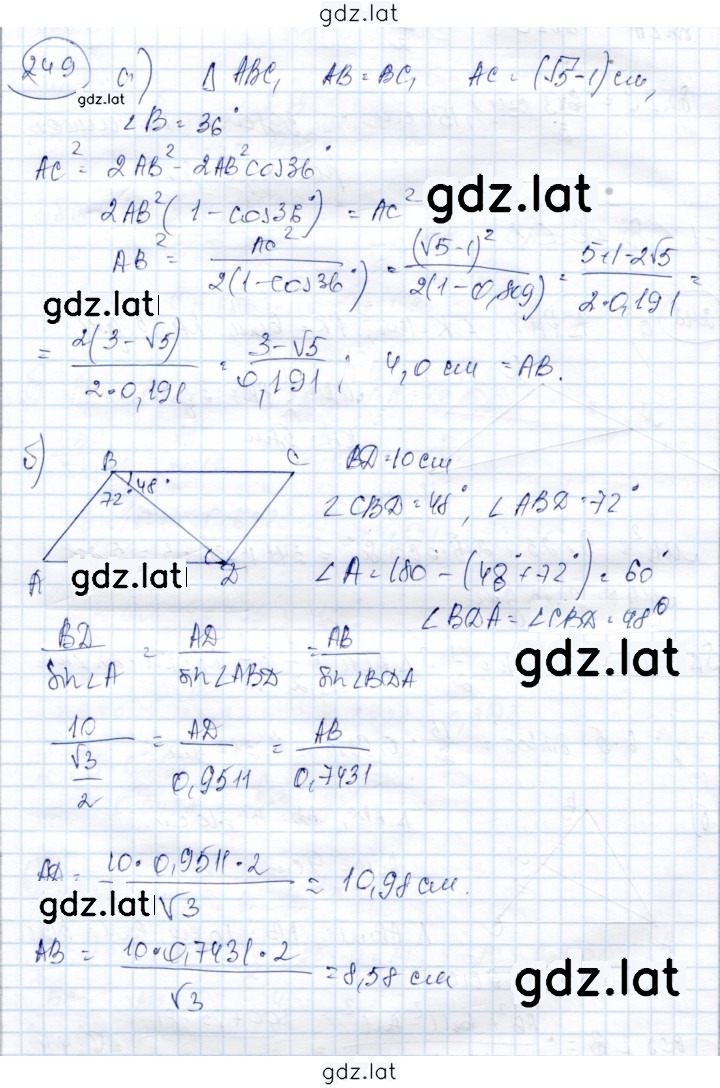 gdz.lat
249 a) Δ ABC, AB = BC, AC = (√5-1) см,
gdz.lat
∠B = 36°
AC² = 2AB² - 2AB² cos36°
gdz.lat
2AB² (1 - cos36°) = AC²
AB² = AC² / 2(1-cos36°) = (√5-1)² / 2(1-0,809) = 5+1-2√5 / 2•0,191 =
gdz.lat
= 2(3-√5) / 2•0,191 = 3-√5 / 0,191 ; 4,0 см = AB.
б) B C BD = 10 см
72° 48°
∠CBD = 48°, ∠ABD = 72°
A D
gdz.lat
∠A = 180 - (48°+72°) = 60°
∠BDA = ∠CBD = 48°
BD / sin∠A = AD / sin∠ABD = AB / sin∠BDA
gdz.lat
10 / √3/2 = AD / 0,9511 = AB / 0,7431
AD = 10•0,9511•2 / √3 = 10,98 см.
gdz.lat
AB = 10•0,7431•2 / √3 = 8,58 см
gdz.lat
gdz.lat